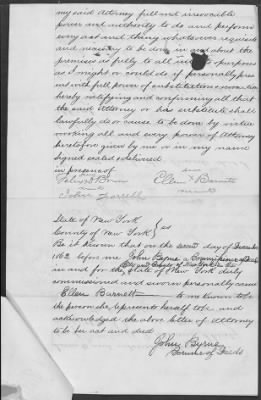 my said Attorney full and irrevocable
power and authority to do and perform
every act and thing whatsoever requisite
and necessary to be done in and about the
premises as fully to all intents & purposes
as I might or could do if personally pres
ent with full power of substitution & revocation
hereby ratifying and confirming all that
the said Attorney or his substitute shall
lawfully do or cause to be done by virtue
working all and every power of Attorney
heretofore given by me or in my name
Signed sealed & delivered
in presence of
Ellen X Barnett
John Farrell mark
State of New York
County of New York } ss
Be it known that on the second day of December
1862 before me John Byrne a Commissioner of Deeds
in and for the State of New York duly
commissioned and sworn personally came
Ellen Barnett to me known to be
the person she represents herself to be and
acknowledged the above letter of Attorney
to be her act and deed
John Byrne
Commr of Deeds